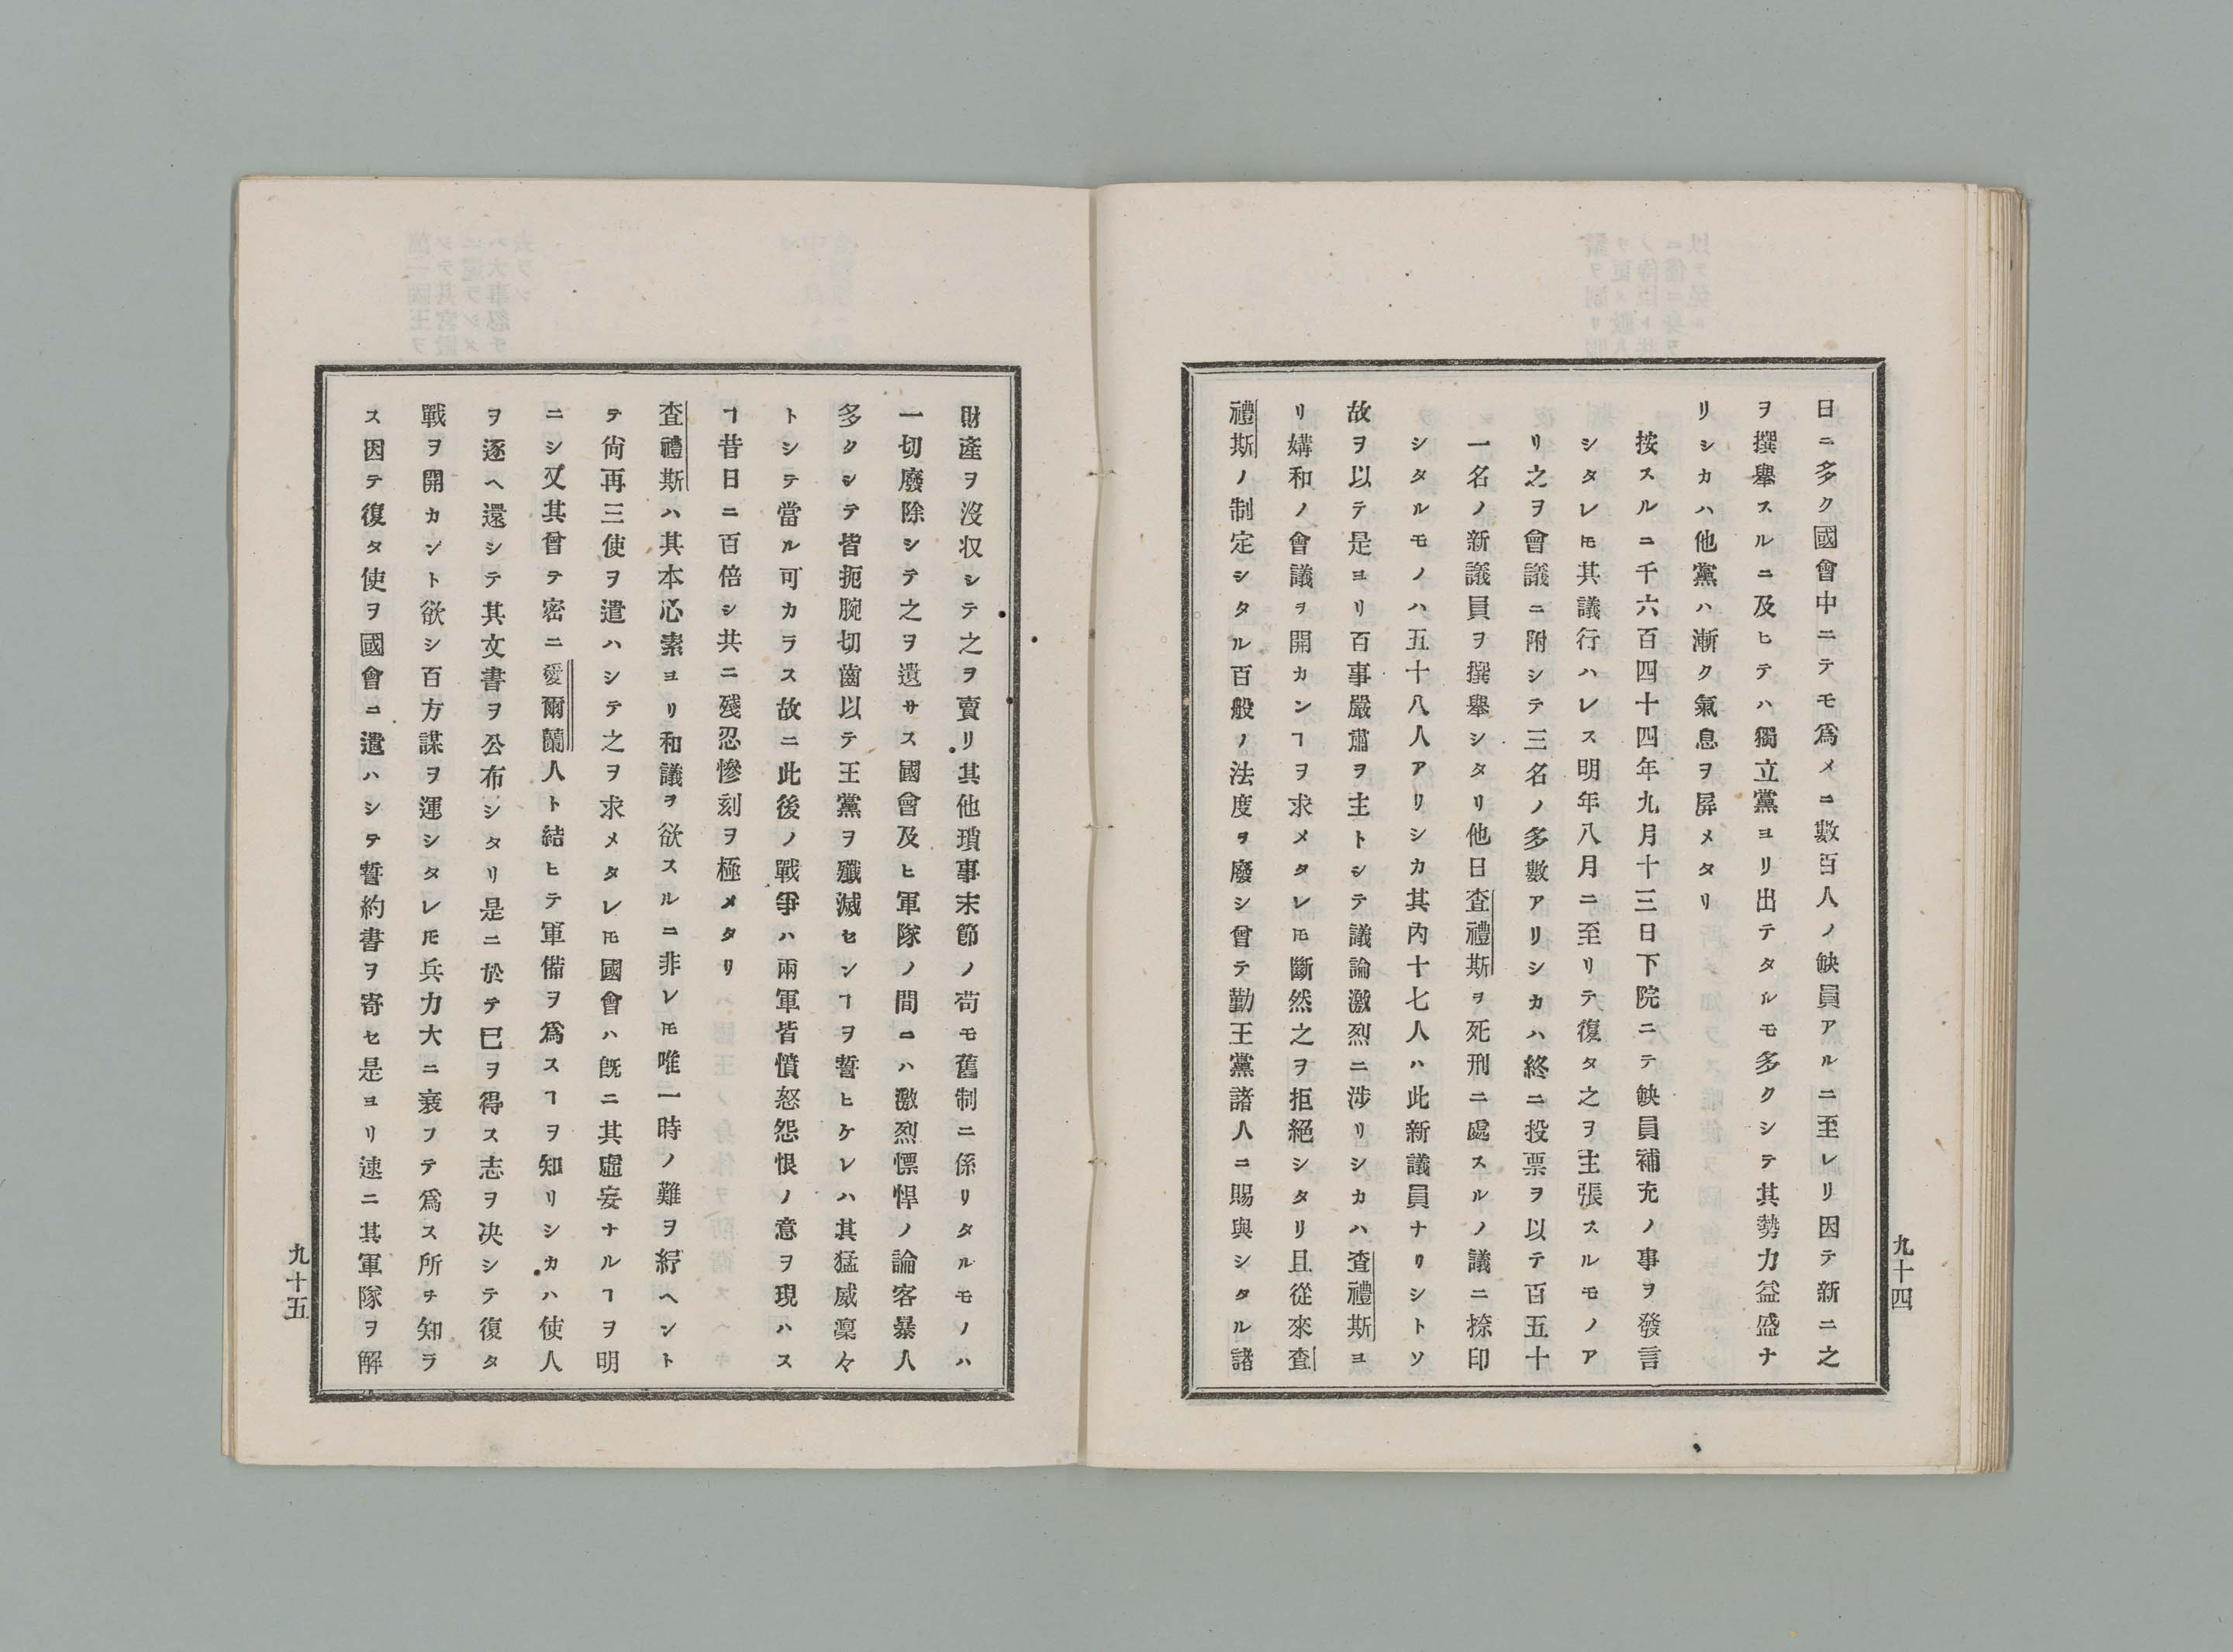 日ニ多ク國會中ニテモ爲メニ數百人ノ缺員アルニ至レリ因テ新ニ之
ヲ撰擧スルニ及ヒテハ獨立黨ヨリ出テタルモ多クシテ其勢力益盛ナ
リシカハ他黨ハ漸ク氣息ヲ屏メタリ
按スルニ千六百四十四年九月十三日下院ニテ缺員補充ノ事ヲ發言
シタレ𪜈其議行ハレス明年八月ニ至リテ復タ之ヲ主張スルモノア
リ之ヲ會議ニ附シテ三名ノ多數アリシカハ終ニ投票ヲ以テ百五十
一名ノ新議員ヲ撰擧シタリ他日査禮斯ヲ死刑ニ處スルノ議ニ捺印
シタルモノハ五十八人アリシカ其內十七人ハ此新議員ナリシトソ
故ヲ以テ是ヨリ百事嚴肅ヲ主トシテ議論激烈ニ涉リシカハ査禮斯ヨ
リ媾和ノ會議ヲ開カンヿヲ求メタレ𪜈斷然之ヲ拒絕シタリ且從來査
禮斯ノ制定シタル百般ノ法度ヲ廢シ曾テ勤王黨諸人ニ賜與シタル諸
九十四
財產ヲ沒収シテ之ヲ賣リ其他瑣事末節ノ苟モ舊制ニ係リタルモノハ
一切廢除シテ之ヲ遺サス國會及ヒ軍隊ノ間ニハ激烈慓悍ノ論客暴人
多クシテ皆扼腕切齒以テ王黨ヲ殲滅センヿヲ誓ヒケレハ其猛威凜々
トシテ當ル可カラス故ニ此後ノ戰爭ハ兩軍皆憤怒怨恨ノ意ヲ現ハス
ヿ昔日ニ百倍シ共ニ殘忍慘刻ヲ極メタリ
査禮斯ハ其本心素ヨリ和議ヲ欲スルニ非レ𪜈唯一時ノ難ヲ紓ヘント
テ尙再三使ヲ遣ハシテ之ヲ求メタレ𪜈國會ハ旣ニ其虛妄ナルヿヲ明
ニシ又其曾テ密ニ愛爾蘭人ト結ヒテ軍備ヲ爲スヿヲ知リシカハ使人
ヲ逐ヘ還シテ其文書ヲ公布シタリ是ニ於テ已ヲ得ス志ヲ决シテ復タ
戰ヲ開カント欲シ百方謀ヲ運シタレ𪜈兵力大ニ衰フテ爲ス所ヲ知ラ
ス因テ復タ使ヲ國會ニ遣ハシテ誓約書ヲ寄セ是ヨリ速ニ其軍隊ヲ解
九十五